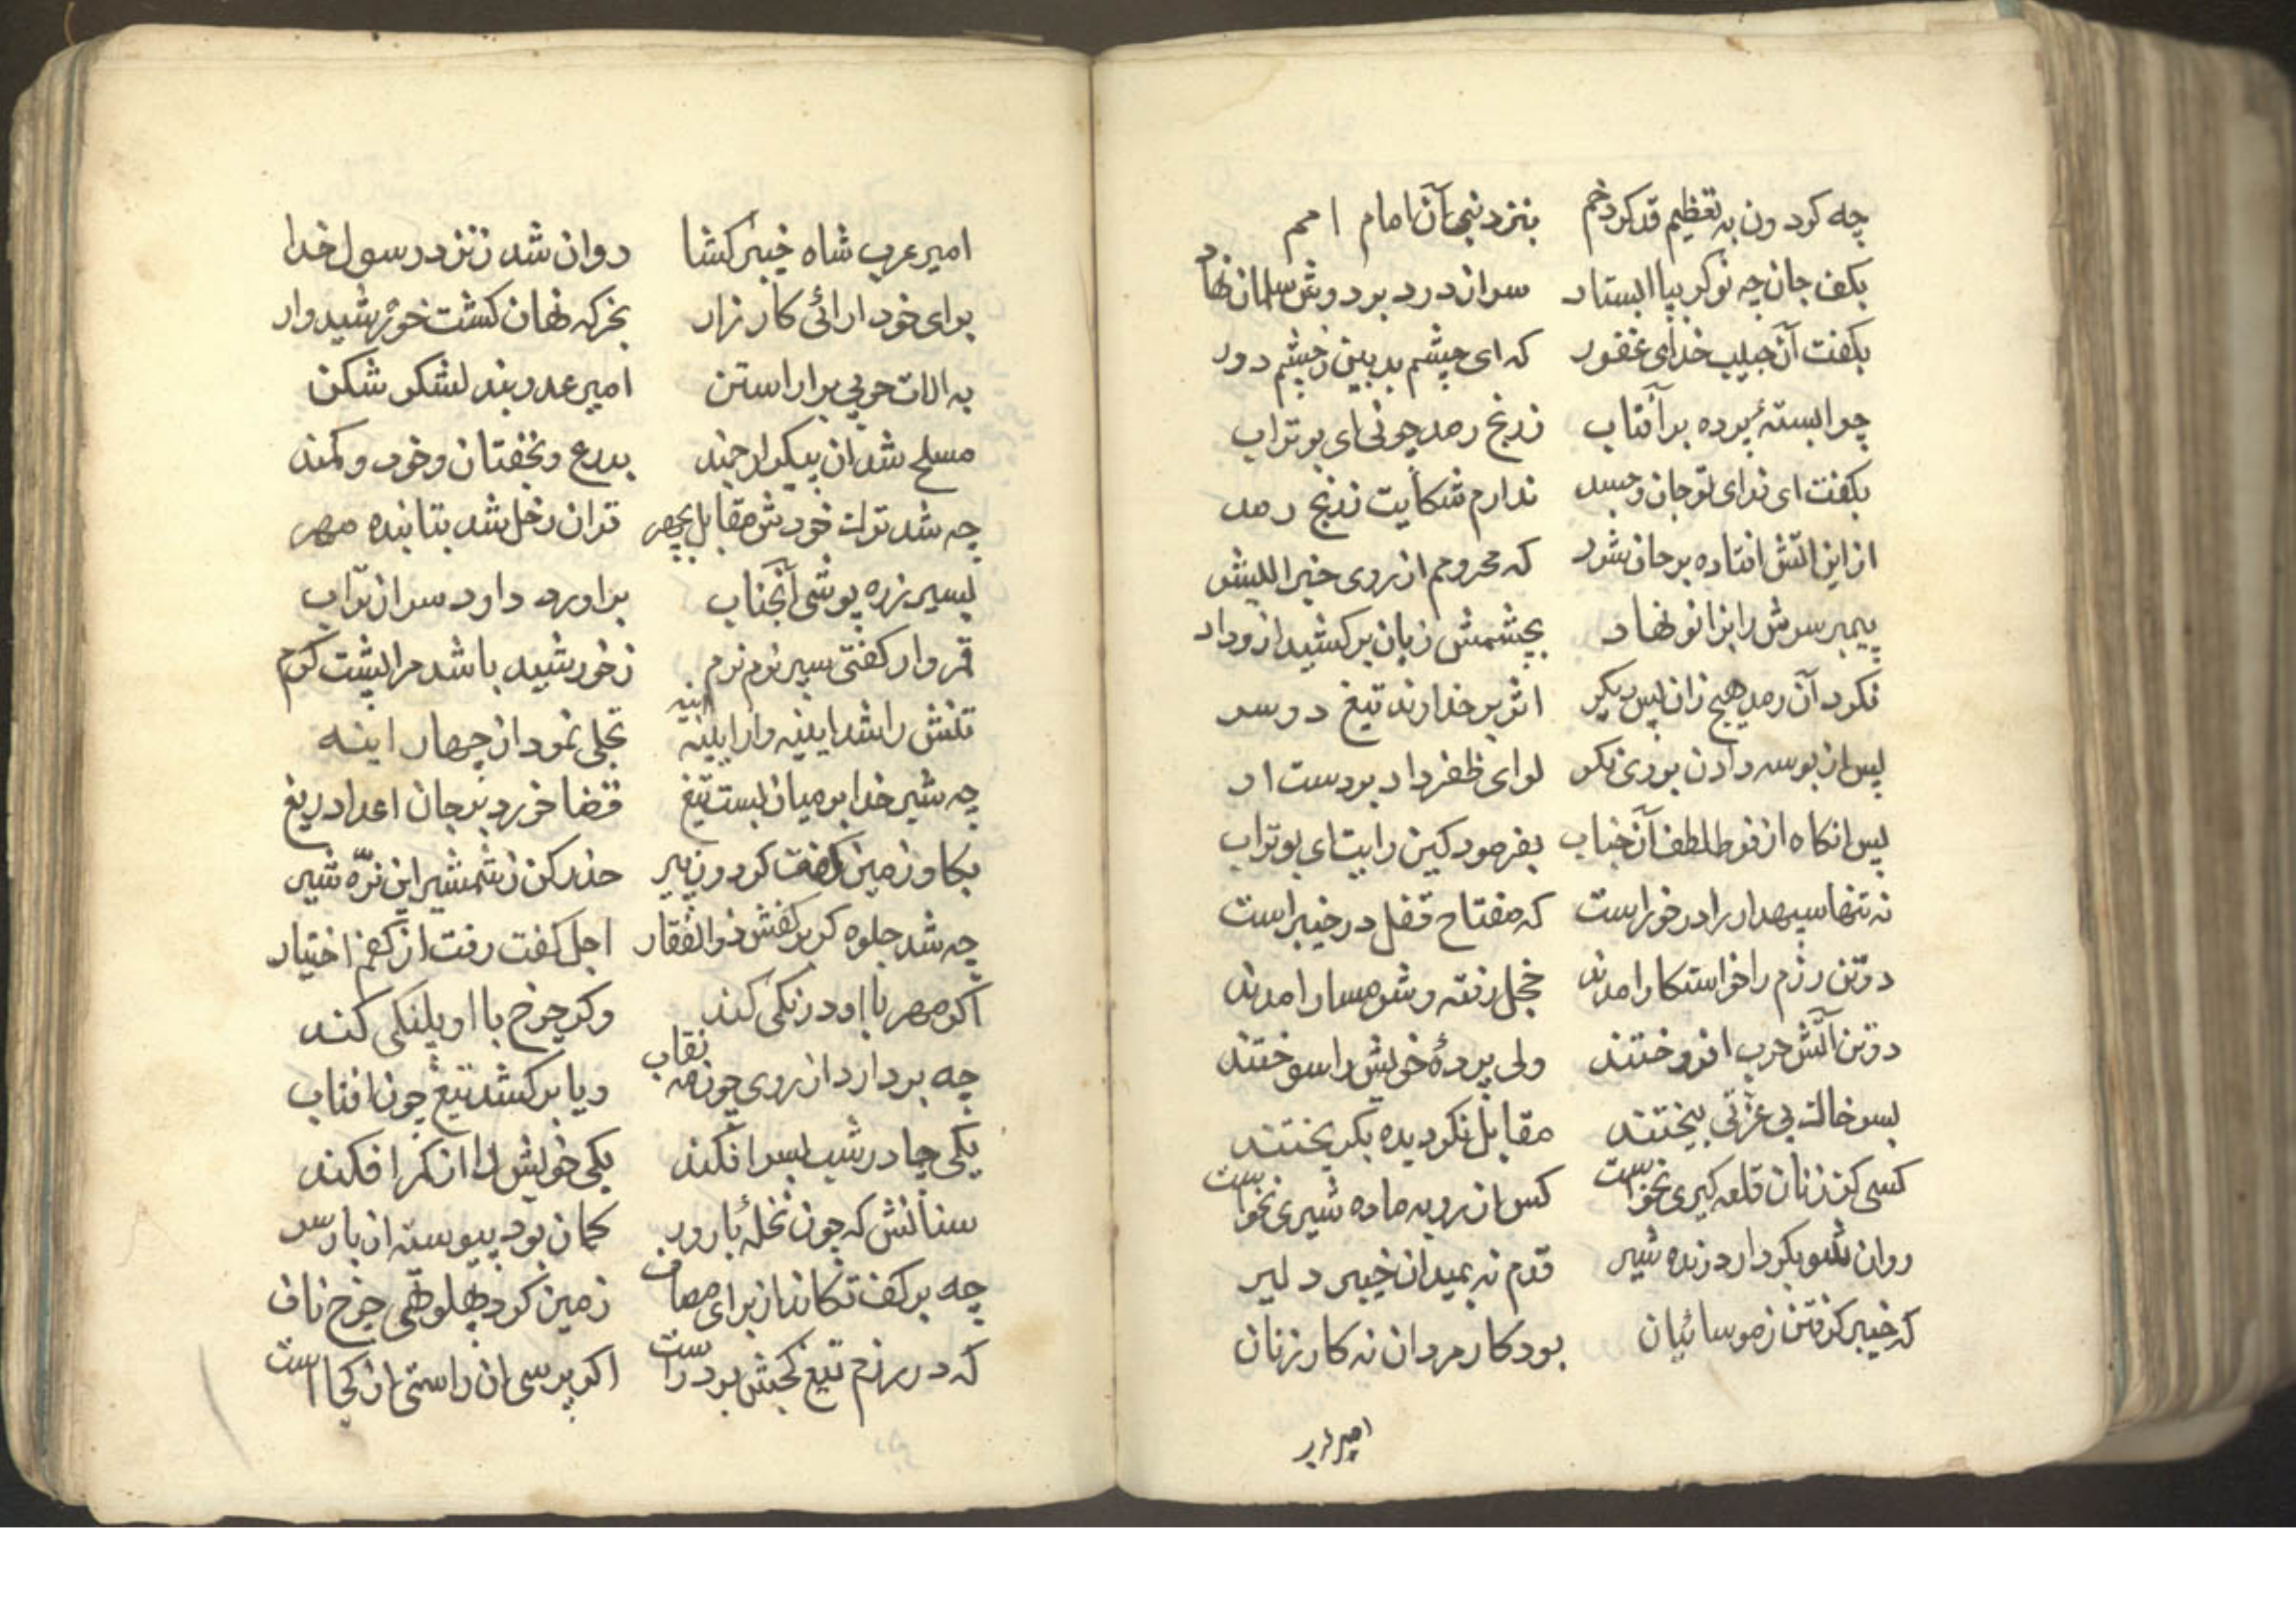 چه کردون به تعظیم قد کرد خم بنزد نبی آن امام امم
بکف جان چه نوکر بپا ایستاد سر از درد بر دوش سلمان نهاد
بکفت آن حبیب خدای غفور که ای چشم بد بین ز چشم دور
چرا بسته پرده بر آفتاب ز رنج رمد چونی ای بوتراب
بکفت ای فدای تو جان و جسد ندارم شکایت ز رنج رمد
از این اتش افتاده بر جان شرر که محرومم از روی خیر البشر
پیمبر سرش را بزانو نهاد بچشمش زبان بر کشید از وداد
نکرد آن رمد هیچ زان پس دیگر اثر بر خداوند تیغ دو سر
پس از بوسه دادن بروی نکو لوای ظفر داد بر دست او
پس انکاه از فرط لطف آن جناب بفرمود کین رایت ای بوتراب
نه تنها سپهدار را در خور است که مفتاح قفل در خیبر است
دو تن رزم را خواستکار امدند خجل رفته و شرمسار امدند
دو تن آتش حرب افروختند ولی پردهٔ خویش را سوختند
بسر خاک بی عزتی بیختند مقابل نکردیده بکریختند
کسی کز زنان قلعه کیری نخواست کس از روبه ماده شیری نخواست
روان شو بکردار درنده شیر قدم نه بمیدان خیبر دلیر
که خیبر کرفتن ز موسائیان بود کار مردان نه کار زنان
امیر عرب
امیر عرب شاه خیبر کشا روان شد ز نزد رسول خدا
برای خود ارائی کارزار بخرکه نهان کشت خورشیدوار
به الات حربی براراستن امیر عدو بند لشکر شکن
مسلح شد ان پیکر ارجمند بدرع و بخفتان و خود و کمند
چه شد ترک خودش مقابل بچهر قران زحل شد بتابنده مهر
بسیر زره پوشی آنجناب براورد داود سر از تراب
قمروار کفتی سپر نرم نرم ز خورشید باشد مرا پشت کرم
تنش را شد ایینه وار اینه تجلی نمود از چهار اینه
چه شیر خدا بر میان بست تیغ قضا خورد بر جان اعدا دریغ
بکاو زمین کفت کردون پیر حذر کن ز شمشیر این نرّه شیر
چه شد جلوه کر بر کفش ذوالفقار اجل کفت رفت از کفم اختیار
اکر مهر با او درنکی کند وکر چرخ با او پلنکی کند
چه بردارد از روی چون مه نقاب و یا برکشد تیغ چون افتاب
یکی چادر شب بسر افکند یکی خویش را از کمر افکند
سنانش که چون نخلهٔ بارور کمان بود پیوسته از بار سر
چه بر کفت تکاند از برای مصاف زمین کرد پهلو تهی چرخ ناف
که در رزم تیغ کجش بود راست اکر پرسی ان راستی از کجاست